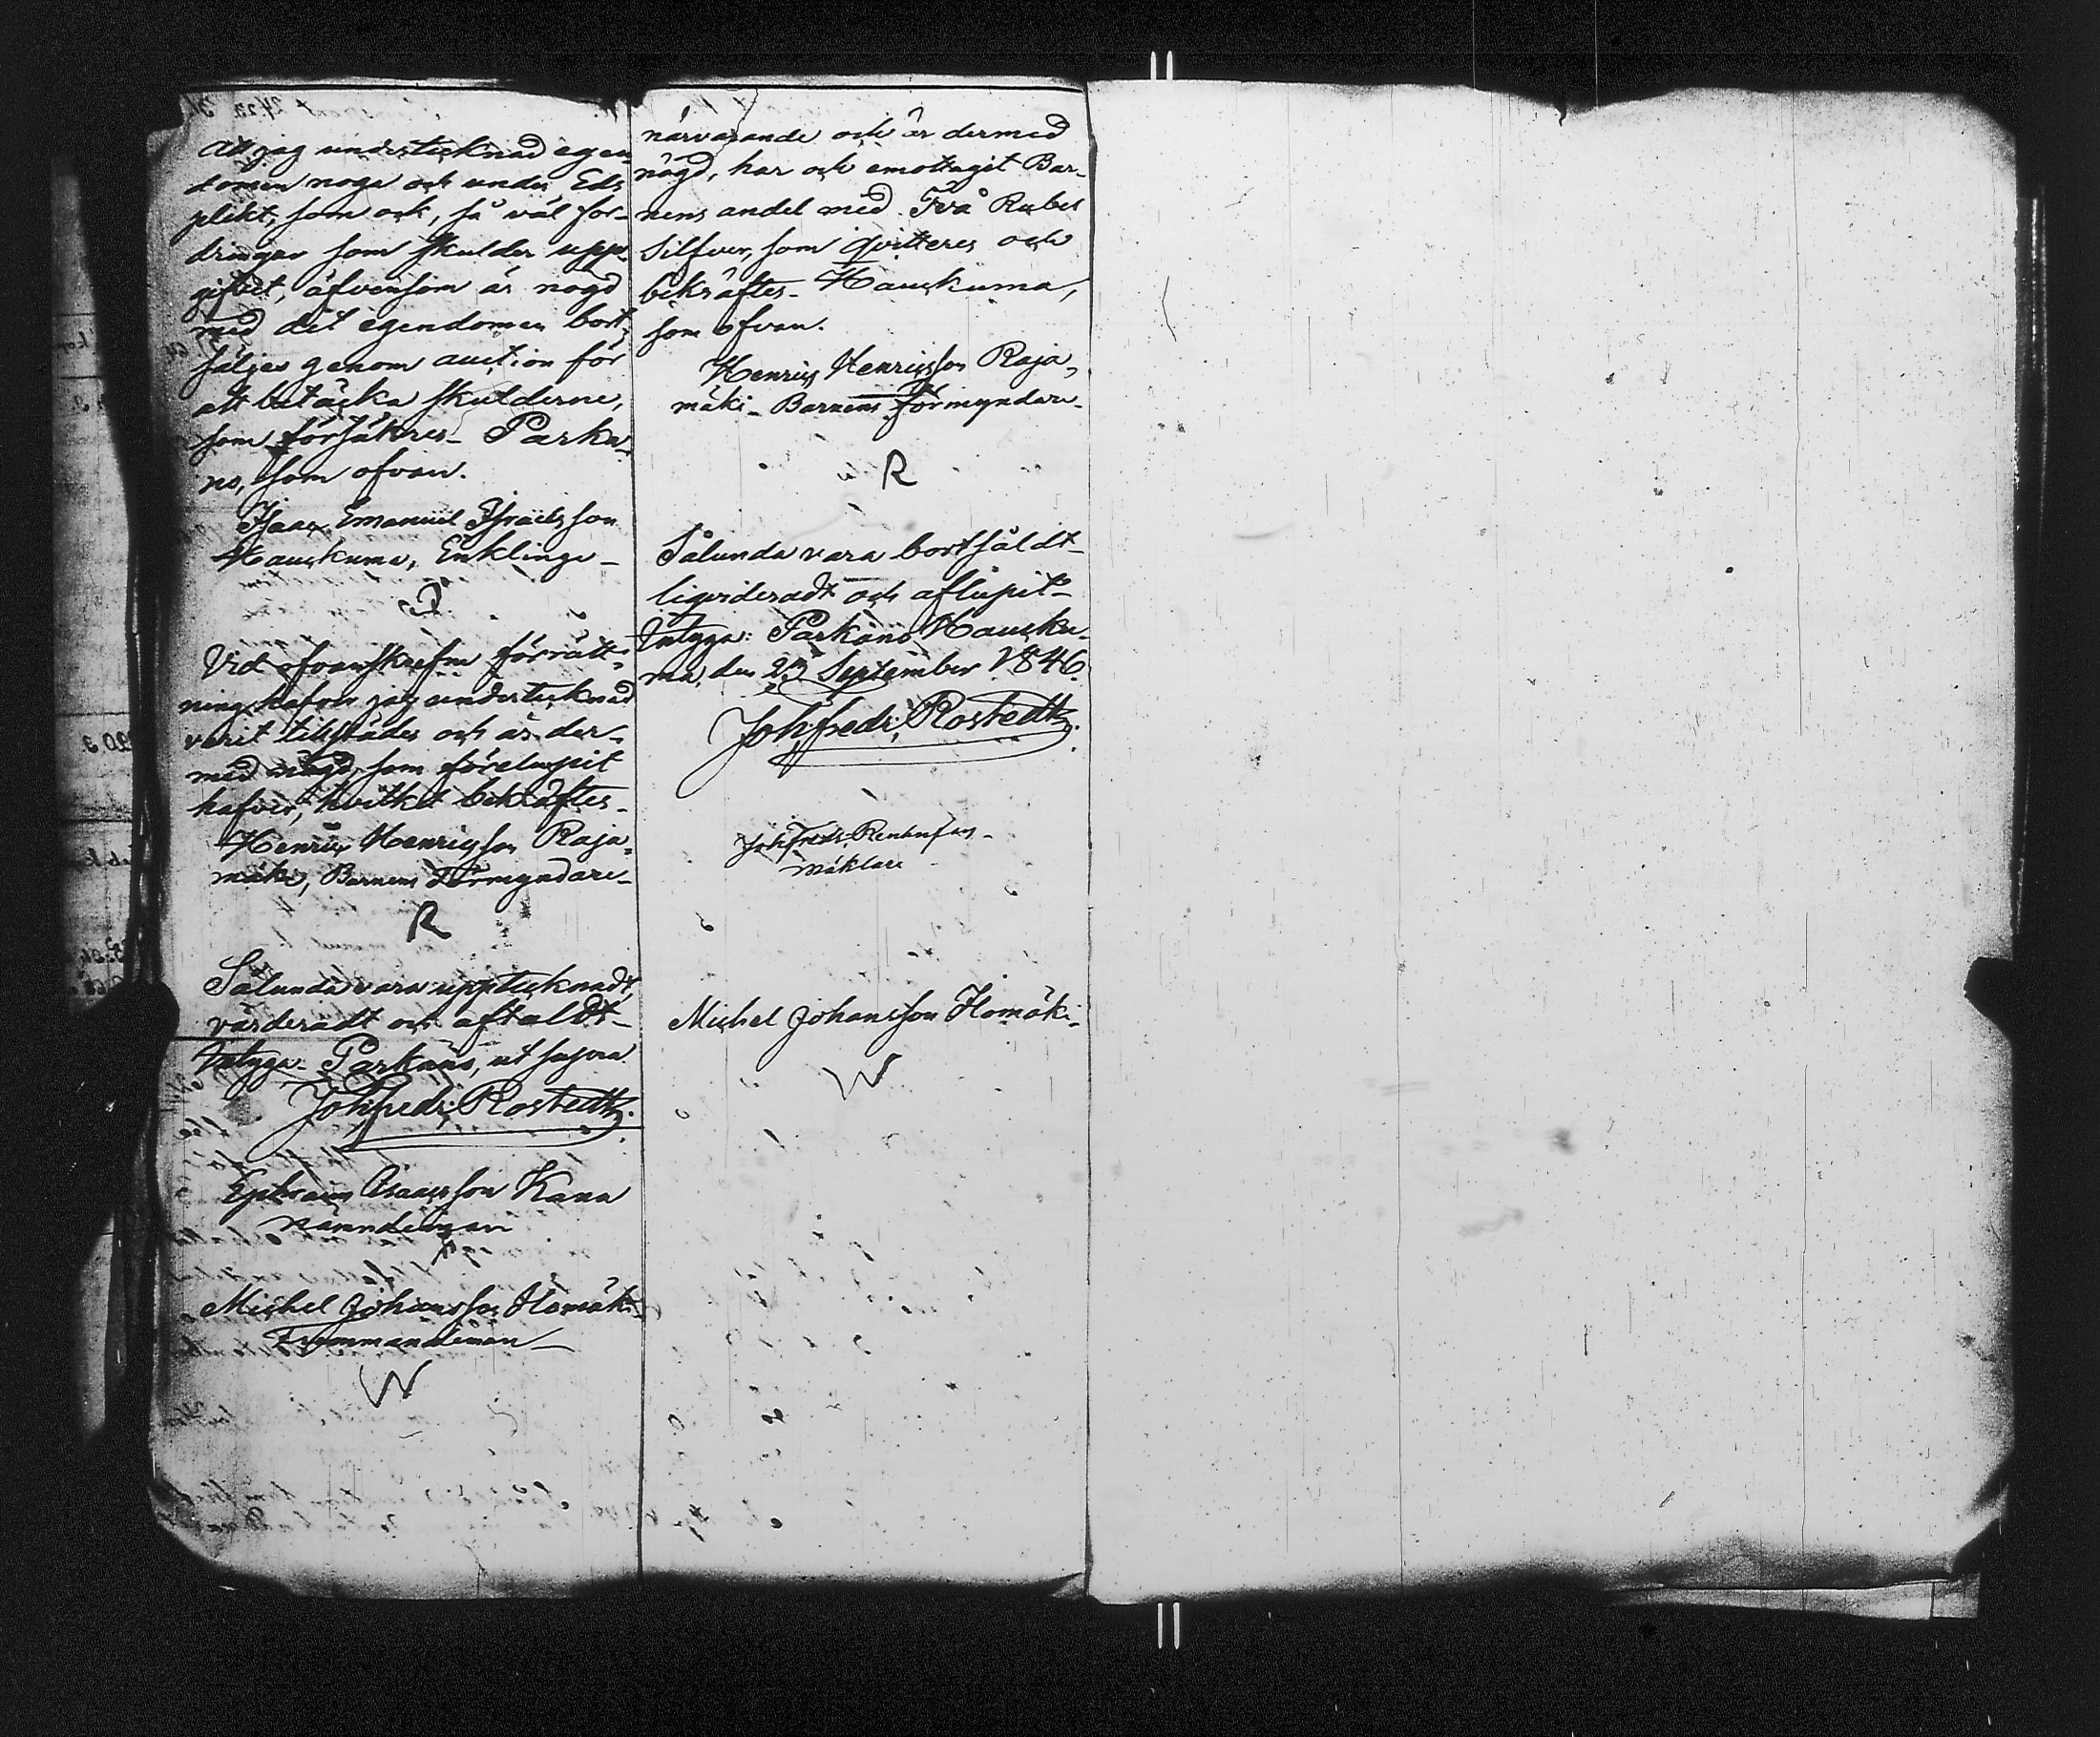 Att jag undertecknad egen-
domen noga och under Eds
plikt, som ock, så väl for-
dringar som skulder upp-
gifvit, äfvensom är nögd
med det egendomen bort-
säljes genom auction för
att betäcka skulderne,
som försäkres_ Parka-
no, som ofvan.
Isaac Emanuel Israelsson
Hauckuma, Enklinge_
Vid ofvanskrefne förrätt-
ning hafver jag undertecknad
varit tillstädes och är der-
med nögd, som förelupit
hafver, hvilket bekräftes_
Henric Henricsson Raja-
mäki, Barnens Förmyndare_
R
Sålunda vara upptecknadt,
värderadt och aftaldt_
Intyga_ Parkano, ut supra
Joh: Fredr: Rostedt.
Ephraim Isaacsson Kana
Nämndeman
Michel Johansson Homäki_
Frommandeman_
W
närvarande och är dermed
nögd, har och emottagit Bar-
nens andel med Två Rubel
Silfver, som qvitteres och
bekräftes_ Hauckuma,
som ofvan.
Henric Henricsson Raja-
mäki_ Barnens förmyndare_
R
Sålunda vara bortsäldt_
liqvideradt och aflupit_
Intyga: Parkano Haucku-
ma, den 25 September 1846.
Joh: Fredr: Rostedt.
Joh: Fredr:
Mäklare
Michel Johansson Homäki_
W